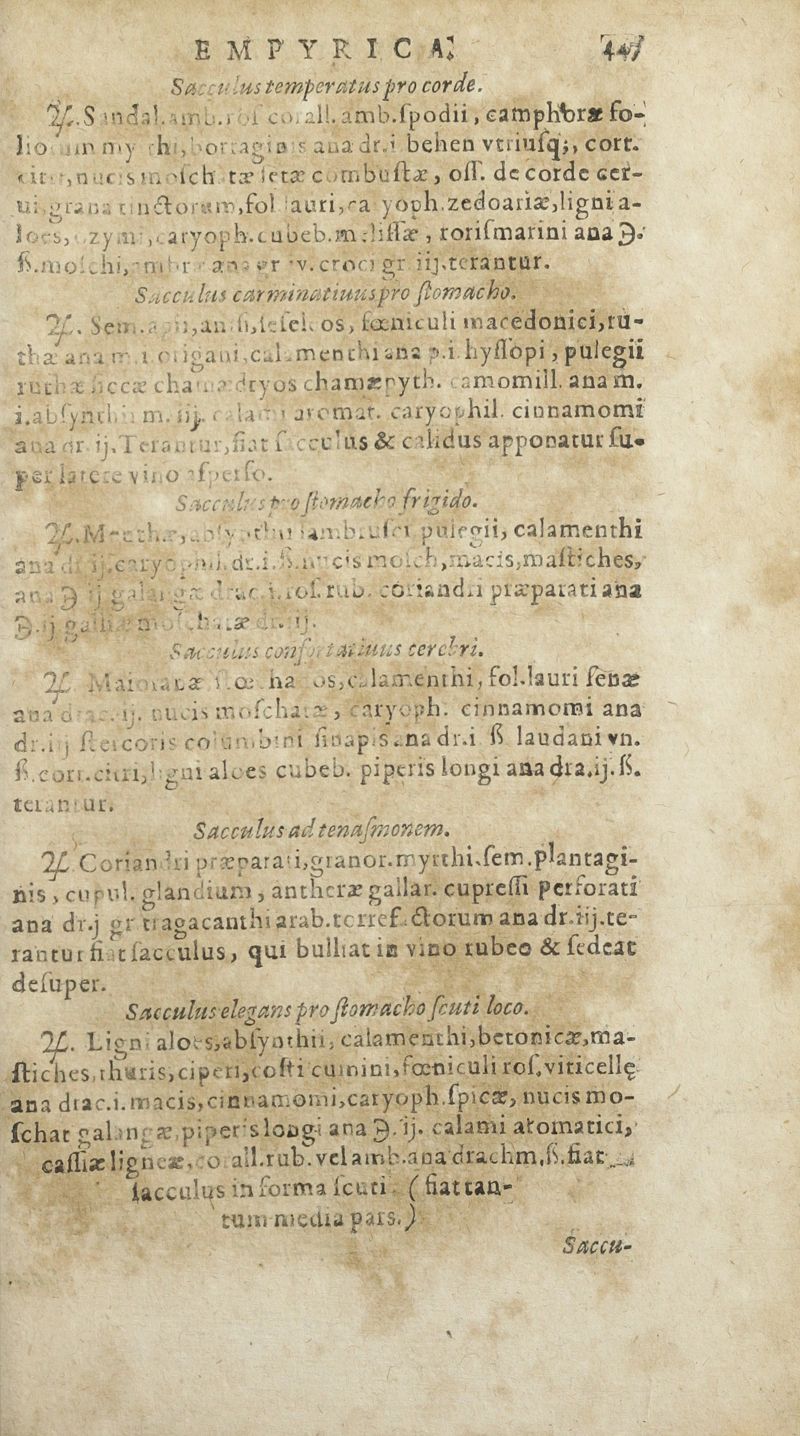 EMPYRICA. 447
Sacculus temperatus pro corde.
℞. Sandal. amb. rof corall. amb. ſpodii, camphoræ fo-
lio ana dr.i behen vtriuſq;, cort.
nucis moſch. tæ ſetæ combuſtæ, oſſ. de corde cer-
ui, grana tinctorum, fol auri, ca yoph. zedoariæ, ligni a-
loes, caryoph. cubeb. meliſſæ, roriſmarini ana ℈.
ß. moſchi, ana gr v. croci gr iij. terantur.
Sacculus carminatiuus pro ſtomacho.
℞. Sem. os, fœniculi macedonici, ru-
thæ ana m. i origani, calamenthi ana p.i. hyſſopi, pulegii
ruthæ ſiccæ chamædryos chamæpyth. camomill. ana m.
i. abſynthii m. iij. aromat. caryophil. cinnamomi
ana dr. ij. Terantur, fiat ſacculus & calidus apponatur ſu-
per latere vino aſperſo.
Sacculus pro ſtomacho frigido.
℞. abſynthii pulegii, calamenthi
ana ij. caryophil. dr.i.ß. nucis moſch, macis, maſtiches,
ana ℈ ij galangæ drac. i. roſ. rub. coriandri præparati ana
℈.ij
Sacculus confortatiuus cerebri.
℞ calamenthi, fol. lauri ſenæ
ana ij. nucis moſchatæ, caryoph. cinnamomi ana
dr.ij ſtercoris columbini ſinapis ana dr.i ß laudani vn.
ß. cort. citri, ligni aloes cubeb. piperis longi ana dra.ij.ß.
terantur.
Sacculus ad tenaſmonem.
℞ Coriandri præparati, granor. myrthi. ſem. plantagi-
nis, cupul. glandium, antheræ gallar. cupreſſi perforati
ana dr.j gr tragacanthi arab. terref.ctorum ana dr.iij. te-
rantur fiat ſacculus, qui bulliat in vino rubeo & ſedeat
deſuper.
Sacculus elegans pro ſtomacho ſcuti loco.
℞. Ligni aloes, abſynthii, calamenthi, betonicæ, ma-
ſtiches, thuris, ciperi, coſti cumini, fœniculi roſ, viticellę
ana drac. i. macis, cinnamomi, caryoph. ſpicæ, nucis mo-
ſchat galangæ, piperis longi ana ℈. ij. calami aromatici,
caſſiæ ligneæ, corall. rub. vel amb. ana drachm. ß. fiat
ſacculus in forma ſcuti. ( fiat tan-
tum media pars. )
Saccu-